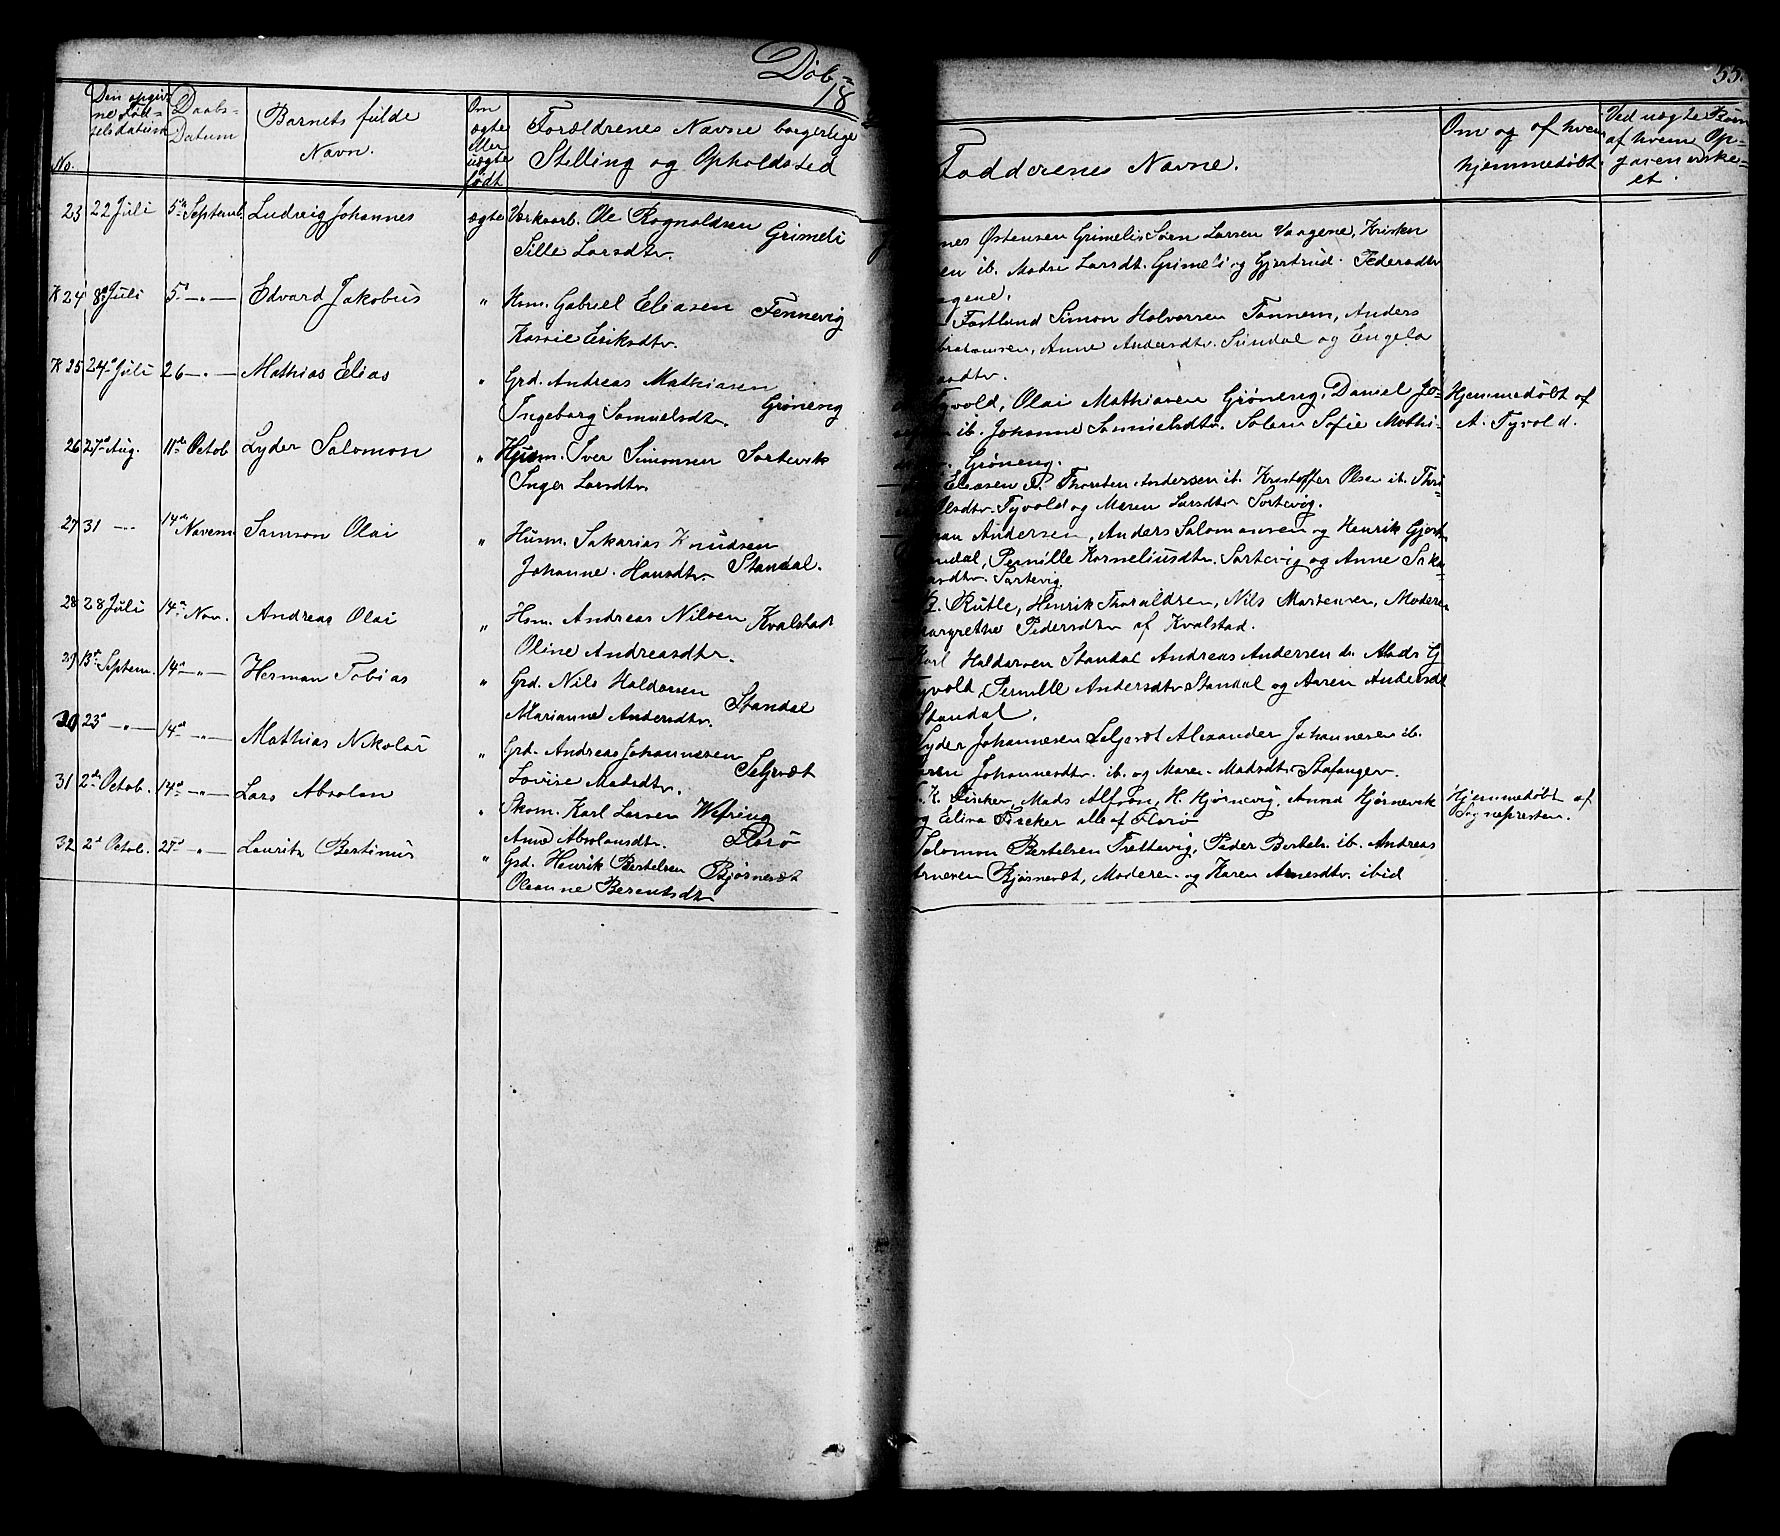 Døb-
18
55.
No.
Den opgiv-
ne Fød-
selsdatum
Daabs-
Datum
Barnets fulde
Navn.
Om
ægte
eller
uægte
født
Forældrenes Navne borgerlige
Stilling og Opholdssted
Fadderenes Navne.
Om og af hvem
hjemmedøbt.
Ved uægte Børn
af hvem Op-
gaven er ske-
et.
23 22 Juli 5te Septemb. Ludvig Johannes ægte Værkarb. Ole Rognaldsen Grimeli
Sille Larsdtr.
nes Østensen Grimeli Sørn Larsen Vaagene, Kristen
en ib. Madse Larsdt. Grimeli og Gjertrud Pedersdtr
agene.
K 24 8de Juli 5te — " — Edvard Jakobus " Hsm. Gabriel Eliasen Fennevig
Eriksdtr.
Fortlund Simon Halvorsen Tonnem, Anders
Anne Andersdtr. Sundal og Engela
dtr.
K 25 24de Juli 26 — " — Mathias Elias " Grd. Andreas Mathiasen
Ingeborg Samuelsdtr. Grøneng
Tyvold, Olai Mathiasen Grøneng, Daniel Jo-
ib. Johanne Samuelsdtr. Solem Sofie Mathi-
Grøneng.
Hjemmedøbt af
A. Tyvold.
26 27de Aug. 11te Octob Lyder Salomon " Husm. Iver Simonsen Sortevik
Inger Larsdtr.
Eliasen Thorsten Andersen ib. Kristoffer Olsen ib. Thri-
lsdtr. Tyvold og Maren Larsdtr Sortevig.
27 31 — " — 14de Novem. Samson Olai " Husm. Sakarias Knudsen
Johanne Hansdtr Standal.
an Andersen, Anders Salomonsen og Henrik Gjert-
ndal, Pernille Korneliusdtr. Sortevig og Anne Saka-
dtr. Sortevig.
28 28 Juli 14de Nov. Andreas Olai " Hsm. Andreas Nilsen Kvalstad
Oline Andreasdtr.
Rutle, Henrik Tharaldsen, Nils Mortensen, Moderen
argrethe Pedersdtr af Kvalstad.
29 13de Septem. 14de — " — Herman Tobias " Grd. Nils Haldorsen
Marianne Andersdtr. Standal
Karl Haldorsen Standal Andreas Andersen do. Mads G
Tyvold, Pernille Andersdtr Standal og Aaren Andersdt
Standal.
30 23de — " — 14de — " — Mathias Nikolai " Grd. Andreas Johannesen
Lovise Madsdtr. Seljesæt
Lyder Johannesen Seljesæt Alexander Johannesen ib.
aren Johannesdtr. ib. og Maren Madsdtr Stafanger.
31 2den Octob. 14de — " — Lars Absolon " Skom. Karl Larsen Wefring
Anne Absolonsdtr. Florø
K. Fischer, Mads Alfson, H. Hjørnevig, Anna Hjørnevik
og Elina Fischer alle af Florø
Hjemmedøbt af
Sognepresten.
32 2de Octob. 21de — " — Lauritz Bertinus " Grd. Henrik Bertelsen Bjørnesæt
Oleanne Berentsdtr
Salomon Bertelsen Trettevig, Peder Bertels. ib. Andreas
Arnesen Bjørnesæt, Moderen og Karen Arnesdtr. ibid